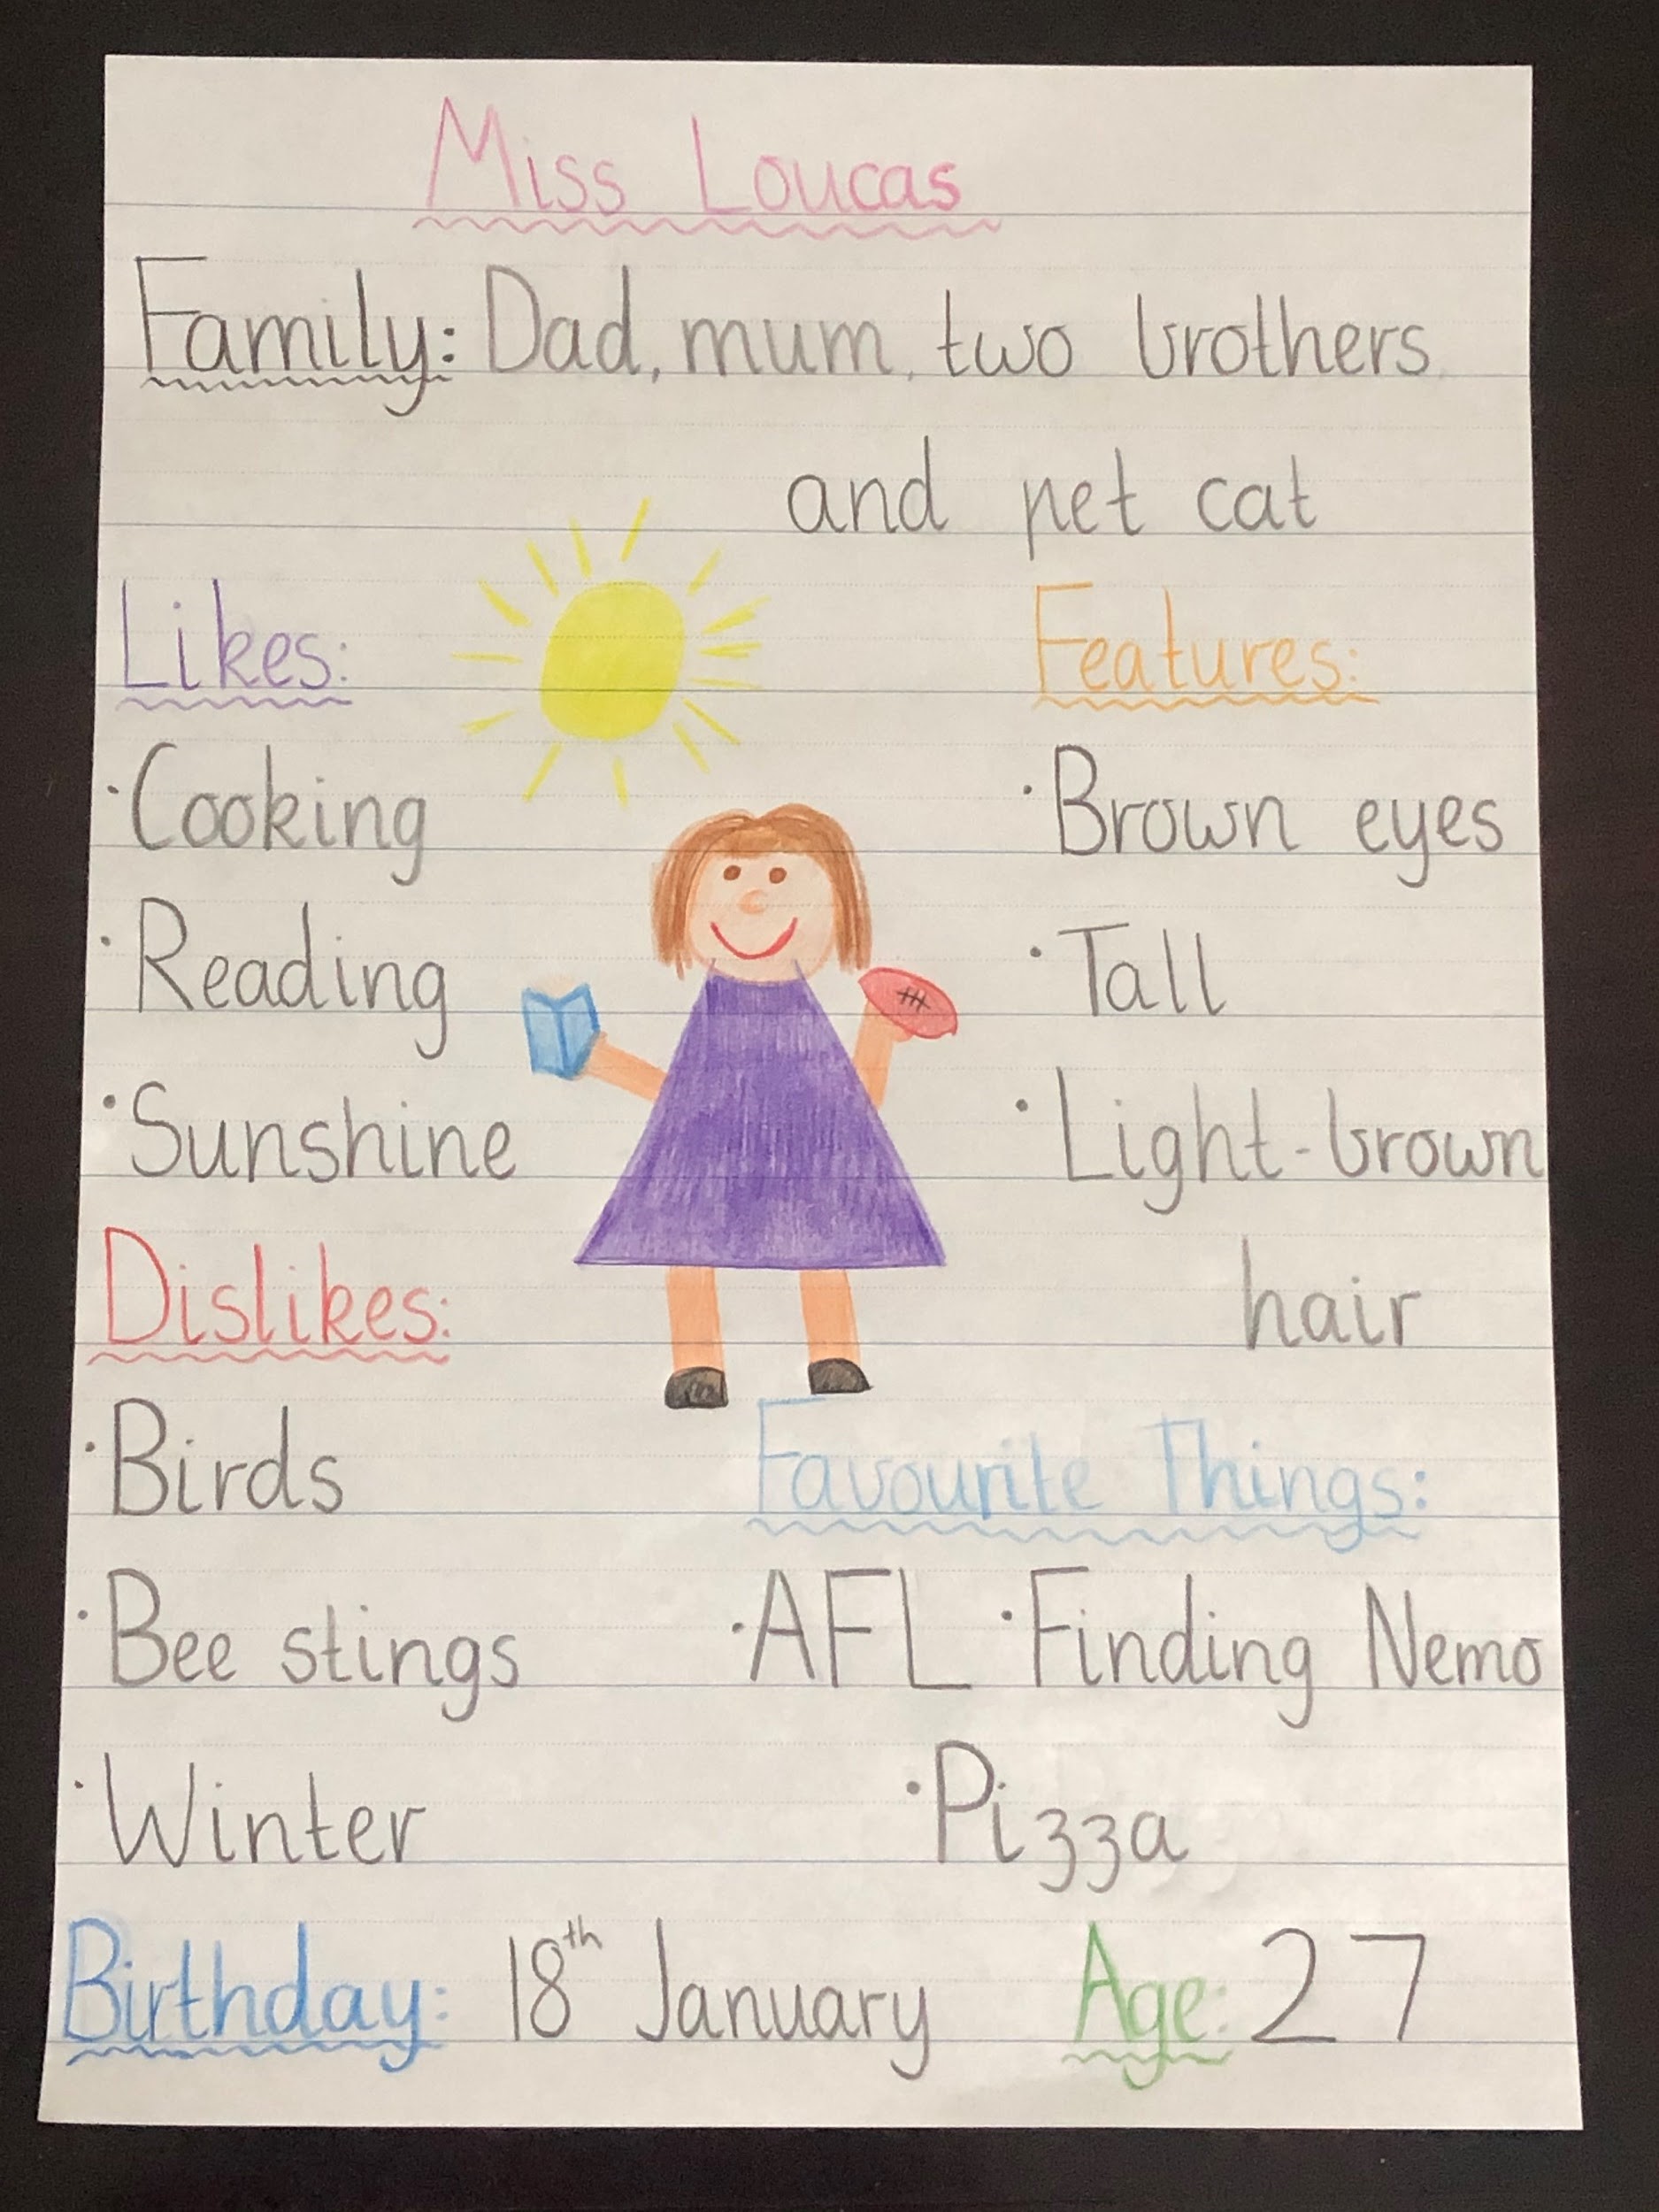 Miss Loucas
Family: Dad, mum, two brothers
and pet cat
Likes:
• Cooking
• Reading
• Sunshine
Features:
• Brown eyes
• Tall
• Light-brown
hair
Dislikes:
• Birds
• Bee stings
• Winter
Favourite Things:
• AFL • Finding Nemo
• Pizza
Birthday: 18th January Age: 27